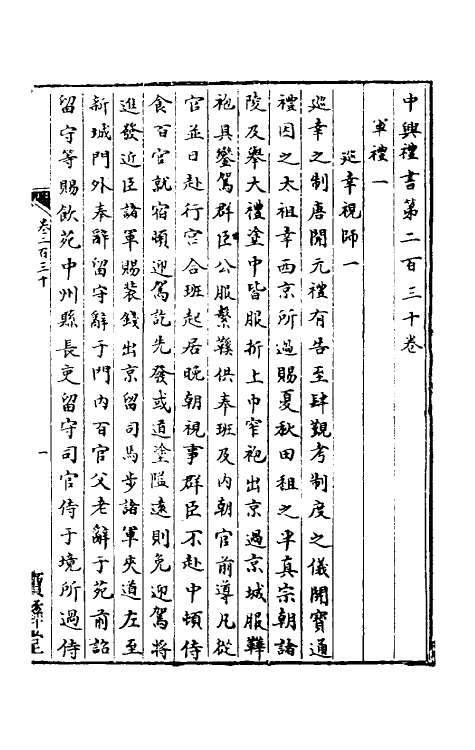 中興禮書第二百三十卷
軍禮一
巡幸視師一
巡幸之制唐開元禮有告至肆覲考制度之儀開寶通
禮因之太祖幸西京所過賜夏秋田租之半真宗朝諸
陵及舉大禮塗中皆服折上巾窄袍出京過京城服鞾
袍具鑾駕群臣公服繫鞵供奉班及內朝官前導凡從
官並日赴行宮合班起居晚朝視事群臣不赴中頓侍
食百官就宿頓迎駕訖先發或道塗隘遠則免迎駕將
進發近臣諸軍賜裝錢出京留司馬步諸軍夾道左至
新城門外奉辭留守辭于門內百官父老辭于苑前詔
留守等賜飲苑中州縣長吏留守司官侍于境所過侍
卷二百三十
一